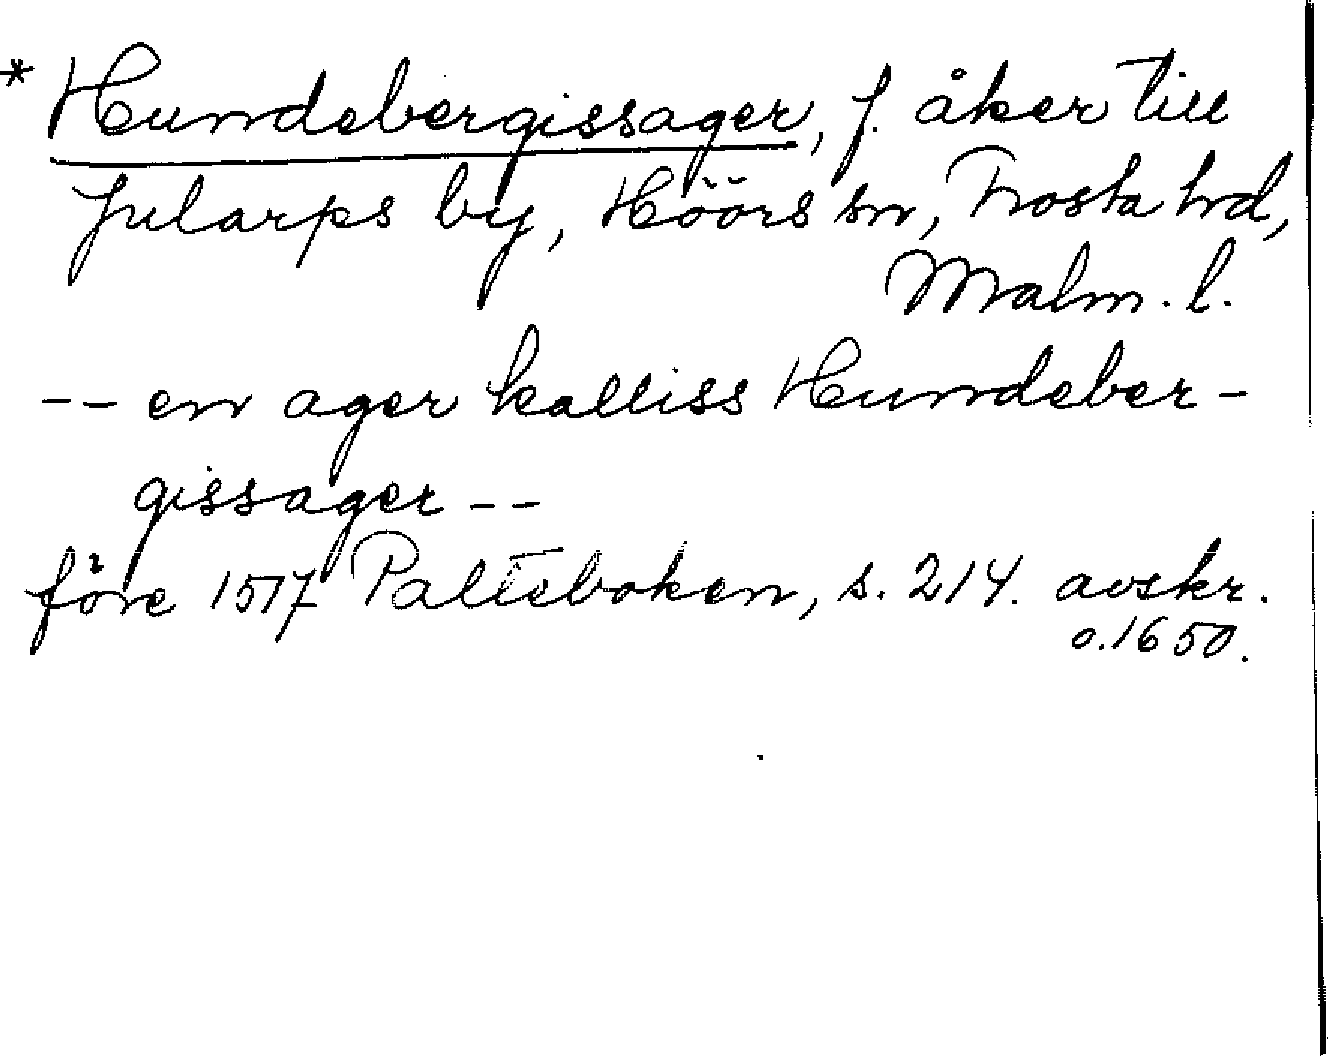 * Hundebergissager, f. åker till
Jularps by, Höörs sn, Frosta hd,
Malm. l.
-- en ager kalliss Hundeber-
gissager --
före 1517 Palteboken, s. 214. avskr.
o. 1650.